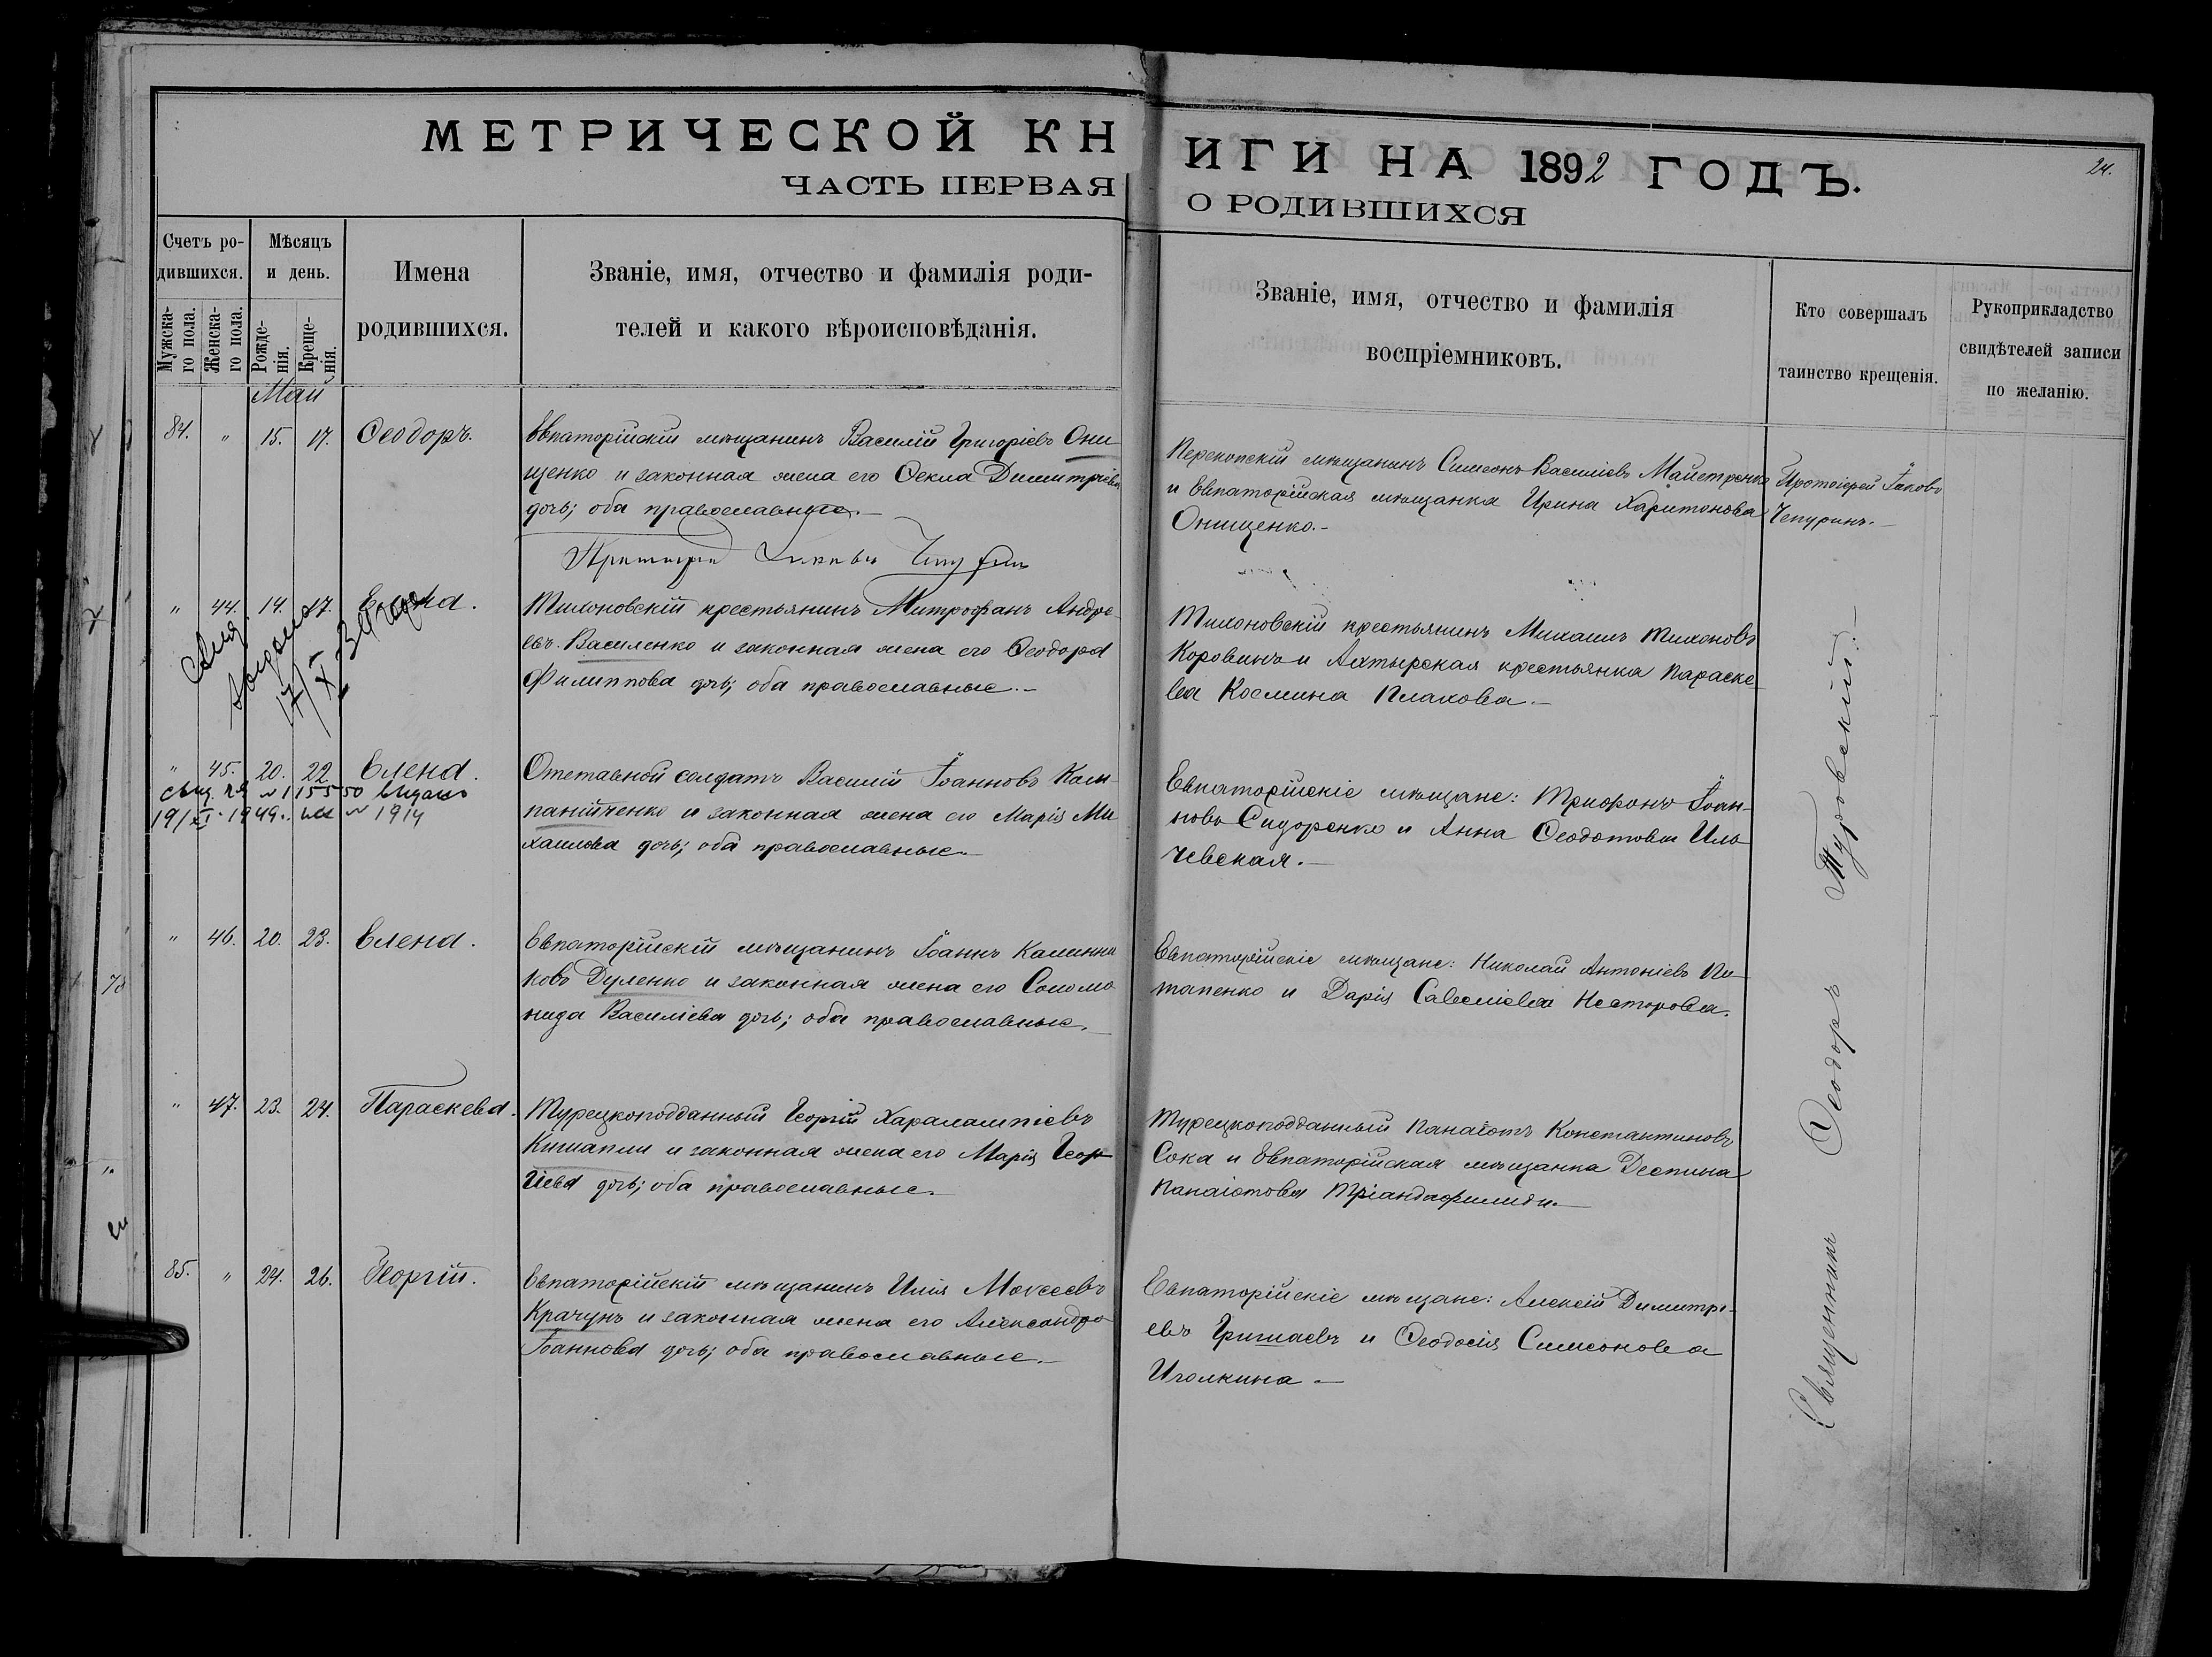 МЕТРИЧЕСКОЙ КНИГИ НА 1892 ГОДЪ.
24.
ЧАСТЬ ПЕРВАЯ О РОДИВШИХСЯ
Счетъ ро-
дившихся.
Мужска-
го пола.
Женска-
го пола.
Мѣсяцъ
и день.
Рожде-
нія.
Креще-
нія.
Имена
родившихся.
Званіе, имя, отчество и фамилія роди-
телей и какого вѣроисповѣданія.
Званіе, имя, отчество и фамилія
воспріемниковъ.
Кто совершалъ
таинство крещенія.
Рукоприкладство
свидѣтелей записи
по желанію.
Май
84. " 15. 17. Ѳеодоръ.
Евпаторійскій мѣщанинъ Василій Григоріевъ Они-
щенко и законная жена его Ѳекла Димитріева
дочь; оба православные.—
Перекопскій мѣщанинъ Симеонъ Василіевъ Майстренко
и Евпаторійская мѣщанка Ирина Харитонова
Онищенко.-
Протоіерей Іаковъ
Чепуринъ.-
Протоіерей Іаковъ Чепуринъ
" 44. 14. 17. Елена.
Тихоновскій крестьянинъ Митрофанъ Андре-
евъ Василенко и законная жена его Ѳеодора
Филиппова дочь; оба православные.-
Тихоновскій крестьянинъ Михаилъ Тихоновъ
Коровинъ и Ахтырская крестьянка Параске-
ва Космина Плахова.-
" 45. 20. 22 Елена.
19/XI-1949. 1914
Отставной солдатъ Василій Іоанновъ Ком-
панійченко и законная жена его Марія Ми-
хаилова дочь; оба православные.
Евпаторійскіе мѣщане: Трифонъ Іоан-
новъ Сидоренко и Анна Ѳеодотова Иль-
чевская.-
" 46. 20. 23. Елена.
Евпаторійскій мѣщанинъ Іоаннъ Каллини-
ковъ Дуленко и законная жена его Соломо-
нида Василіева дочь; оба православные.
Евпаторійскіе мѣщане: Николай Антоніевъ По-
тапенко и Дарія Савеліева Несторова.
" 47. 23. 24. Параскева.
Турецкоподданный Георгій Харалампіевъ
и законная жена его Марія Геор-
гіева дочь; оба православные.
Турецкоподданный Панаіотъ Константиновъ
Сока и Евпаторійская мѣщанка Деспина
Панаіотова Тріандафилиди.-
85. " 24. 26. Георгій.
Евпаторійскій мѣщанинъ Илія Моисеевъ
Крачунъ и законная жена его Александра
Іоаннова дочь; оба православные.-
Евпаторійскіе мѣщане: Алексій Димитрі-
евъ Гришаевъ и Ѳеодосія Симеонова
Иголкина.-
Священникъ Ѳеодоръ Туровскій.-